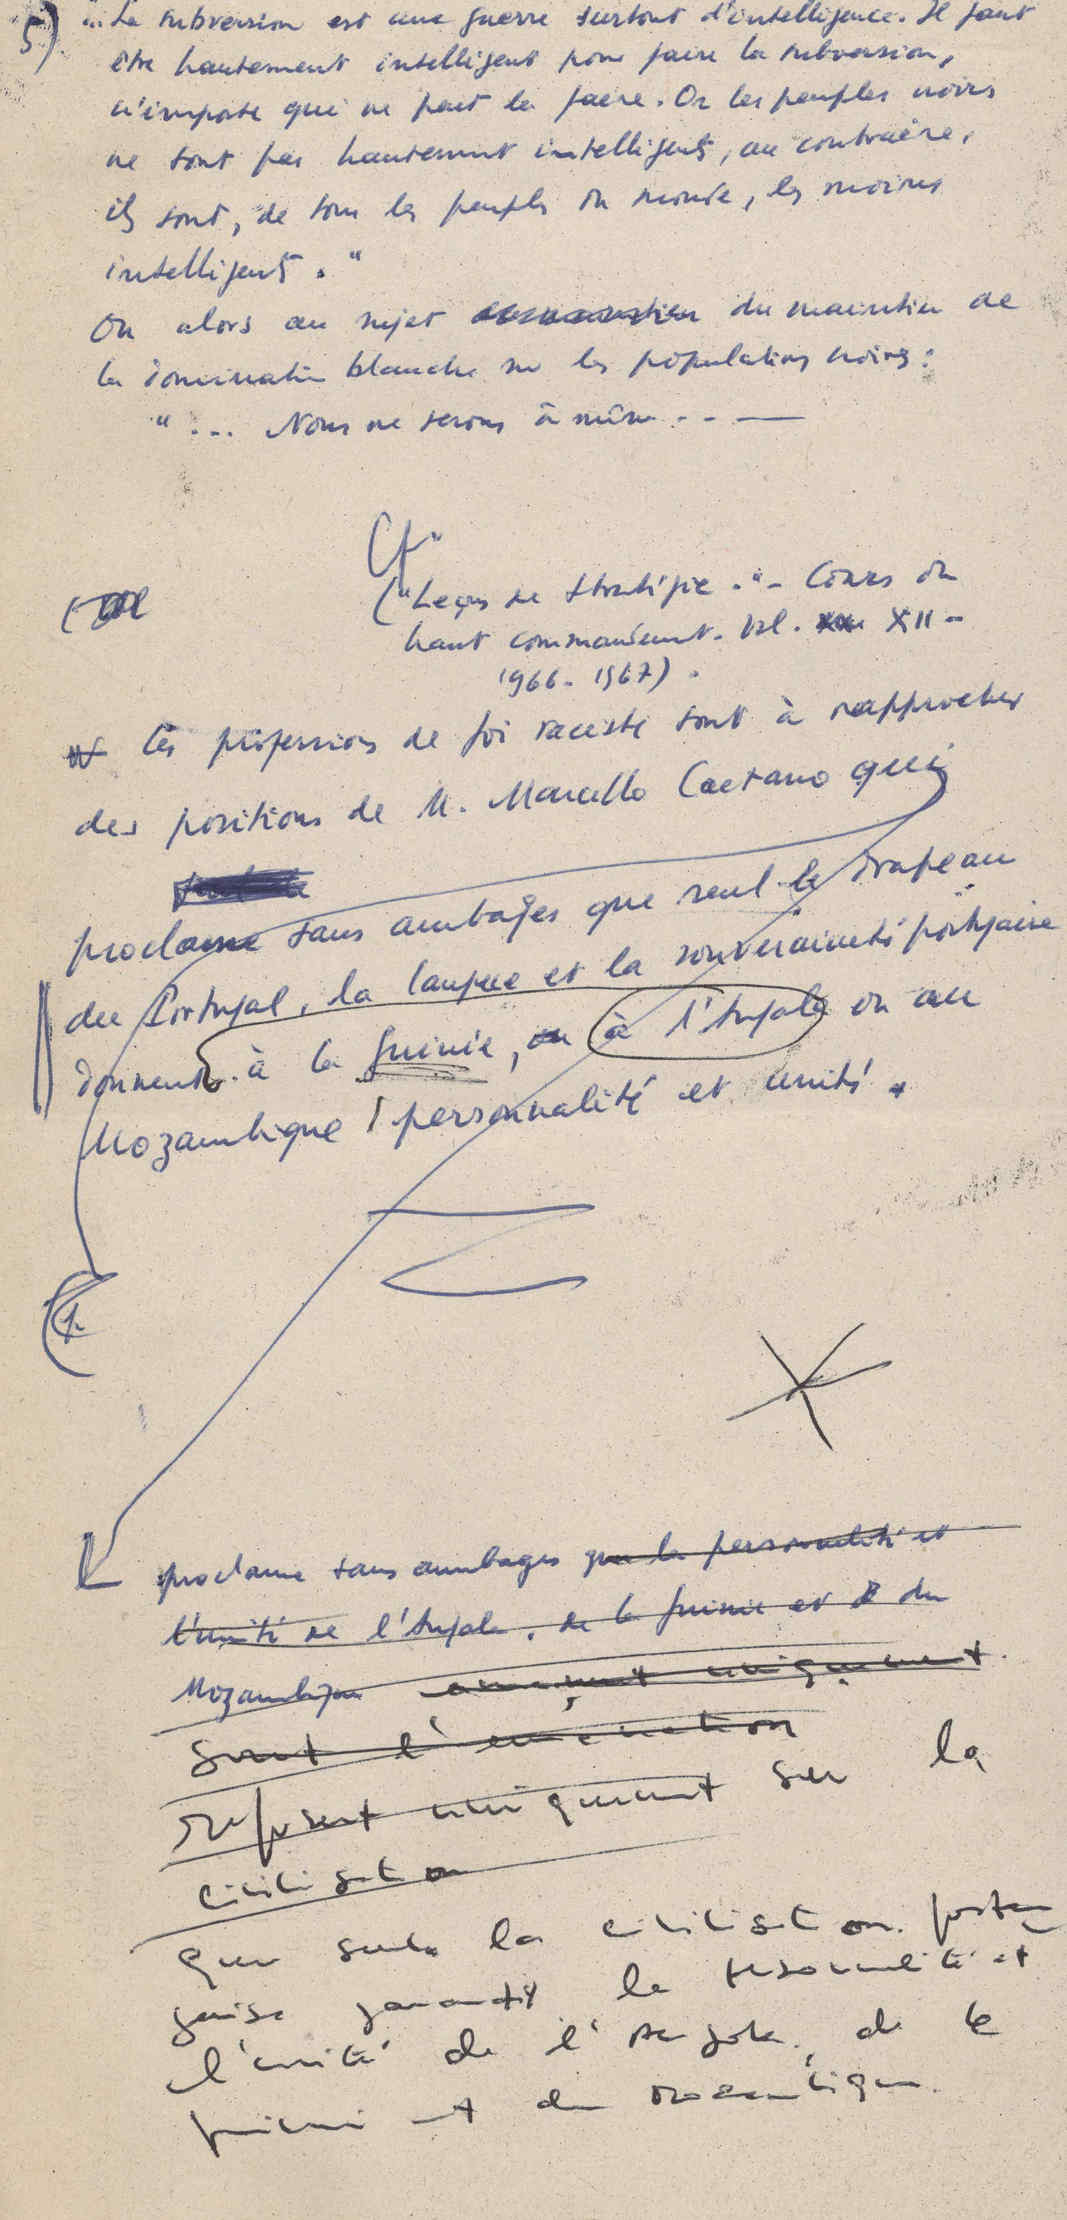 5) "... La subversion est une guerre surtout d'intelligence. Il faut
être hautement intelligent pour faire la subversion,
n'importe qui ne peut la faire. Or les peuples noirs
ne sont pas hautement intelligents, au contraire,
ils sont, de tous les peuples du monde, les moins
intelligents. "
Ou alors au sujet du maintien de
la domination blanche sur les populations noires :
" ... Nous ne serons à même . . —
Cf.
("Leçons de Stratégie." - Cours du
haut commandement. Vol. XII -
1966 - 1967).
Ces professions de foi raciste sont à rapprocher
des positions de M. Marcello Caetano qui
proclame sans ambages que seul le drapeau
du Portugal, la langue et la souveraineté portugaise
donnent à la Guinée, ou à l'Angola ou au
Mozambique personnalité et unité.
proclame sans ambages que la personnalité et
l'unité de l'Angola, de la Guinée et du
Mozambique uniquement
sont l'émanation
reposent uniquement sur la
civilisation
que seule la civilisation portu
gaise garantit la personnalité et
l'unité de l'Angola, de la
Guinée et du Mozambique.